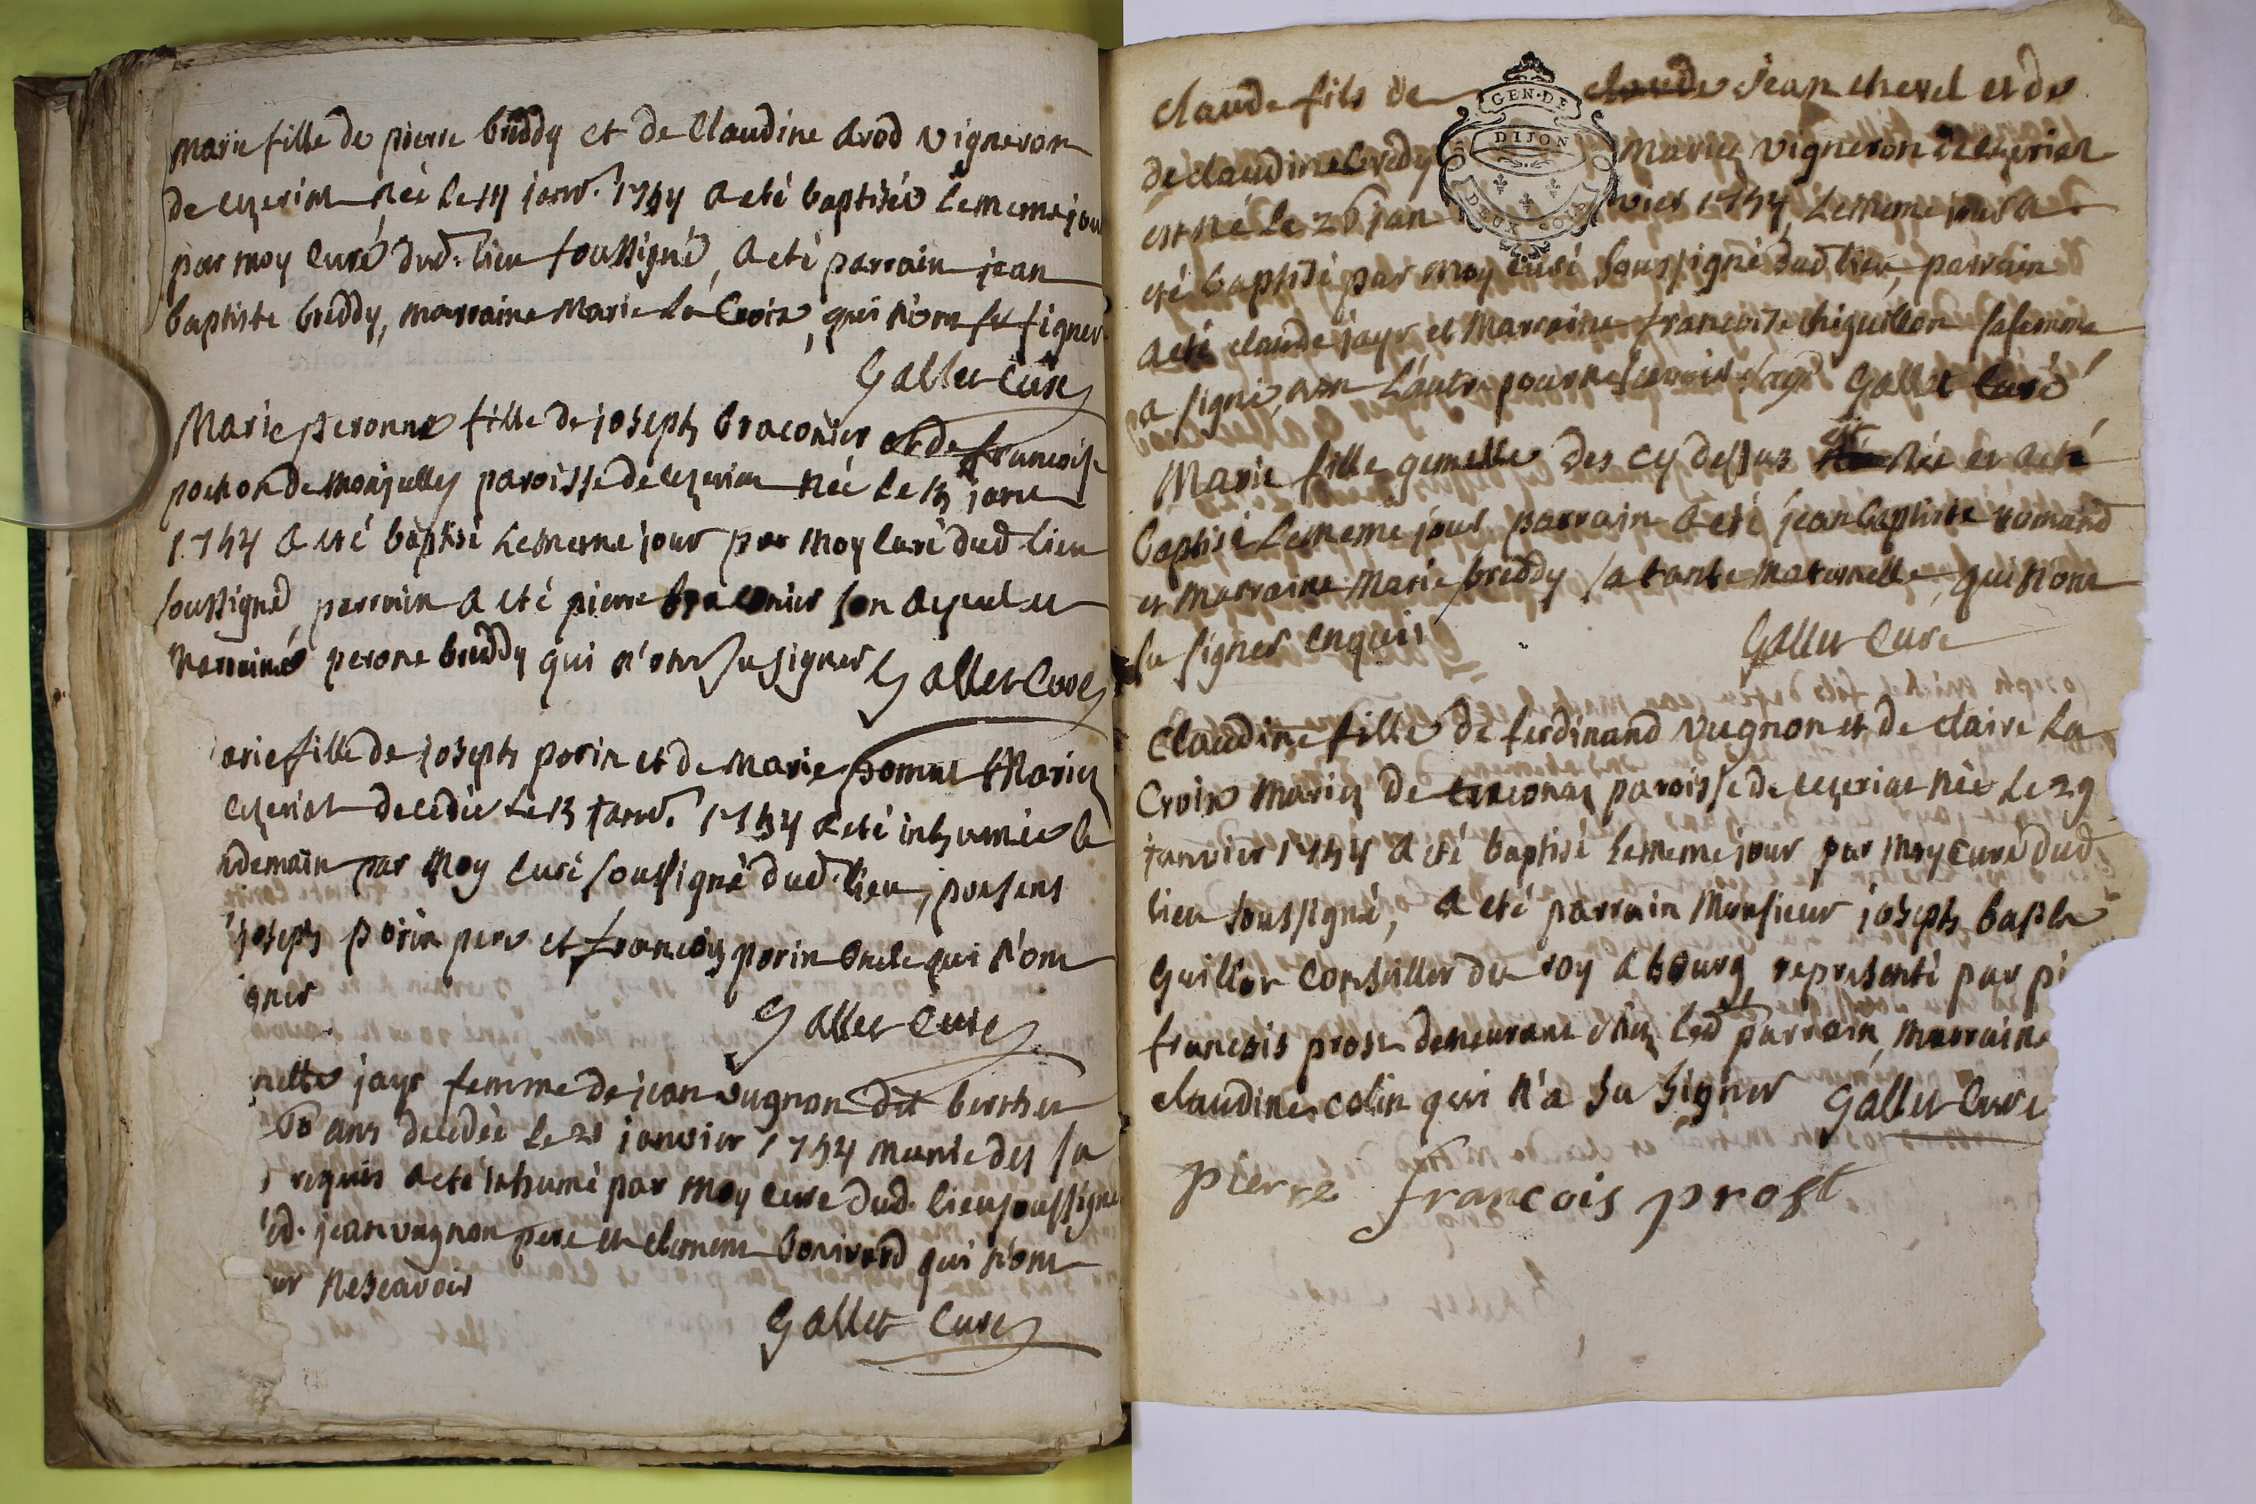 Marie fille de pierre breddy et de Claudine arod vigneron
de cezeriat née le janv. 1754 a eté baptisée le meme jour
par moy curé dud. lieu soussigné, a eté parrain jean
baptiste breddy, marraine Marie la Croix, qui n'ont su signer
Gallet Curé
Marie peronne fille de joseph braconier et de francoise
pochon de Monjully paroisse de cezeriat née le 13 janv
1754 a eté baptisé le meme jour par moy curé dud lieu
soussigné, parrain a eté pierre braconier son ayeul et
Marraine perone breddy qui n'ont su signer Gallet Curé
arie fille de joseph porin et de Marie Mariez
cezeriat decedée le 13 janv. 1754 a eté inhumée le
ndemain par Moy curé soussigné dud. lieu, presens
joseph porin pere et francois porin oncle qui n'ont
gner
Gallet Curé
nette jayr femme de jean vugnon dit berthet
ans decedée le 21 janvier 1754 munie des sa
requis a eté inhumé par moy curé dud. lieu soussigné
ed. jean vugnon pere et clement bonivard qui n'ont
er ne scavoir
Gallet Curé
claude fils de claude jean chevel et de
de claudine breddy Mariez vigneron cezeriat
est né le 26 janvier 1754 le meme jour a
eté baptisé par moy curé soussigné dud lieu, parrain
a eté claude jayr et Marraine francoise chiguillon sa femme
a signé, non l'autre pour ne scavoir Gallet Curé
GEN. DE
DIJON
DEUX SOLS
Marie fille gemelle des cy dessus née et a eté
baptisé le meme jour parrain a eté jean baptiste romand
et marraine Marie breddy sa tante maternelle, qui n'ont
su signer enquis
Gallet Curé
Claudine fille de ferdinand vugnon et de claire la
Croix Mariez de paroisse de cezeriat née le 29
janvier 1754 a eté baptisé le meme jour par moy curé dud
lieu soussigné, a eté parrain Monsieur joseph bapte
Guillot conseiller du roy a bourg, representé par pi
francois prost demeurant chez led parrain, marraine
claudine colin qui n'a su signer Gallet Curé
pierre francois prost